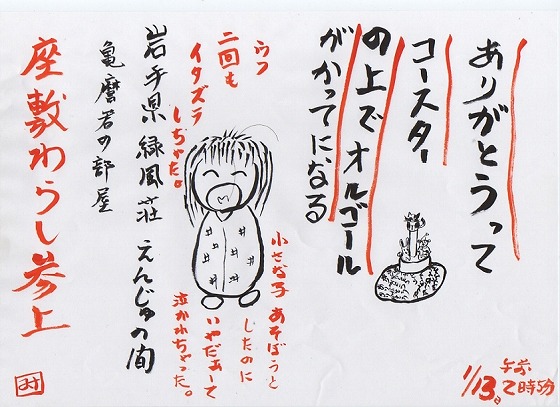 ありがとうって
コースター
の上でオルゴール
がかってになる
1/13日 午前2時5分
小さな子 あそぼうと
したのに
いやだぁーて
泣かれちゃった。
ウフ
二回も
イタズラ
しちゃった。
岩手県 緑風荘 えんじゅの間
亀麿君の部屋
座敷わらし参上